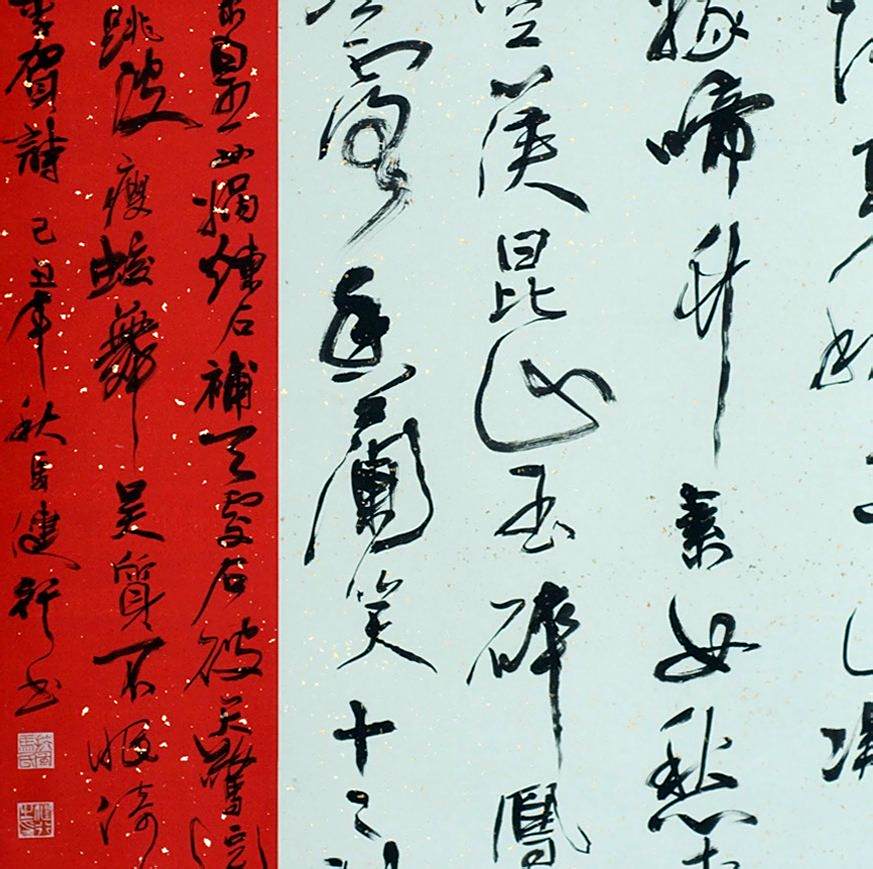 啼竹素女愁
篌昆山玉碎鳳
露香蘭笑十二
皇女媧煉石補天處石破天驚逗
跳波瘦蛟舞吳質不眠倚
賀詩己丑年秋健行書